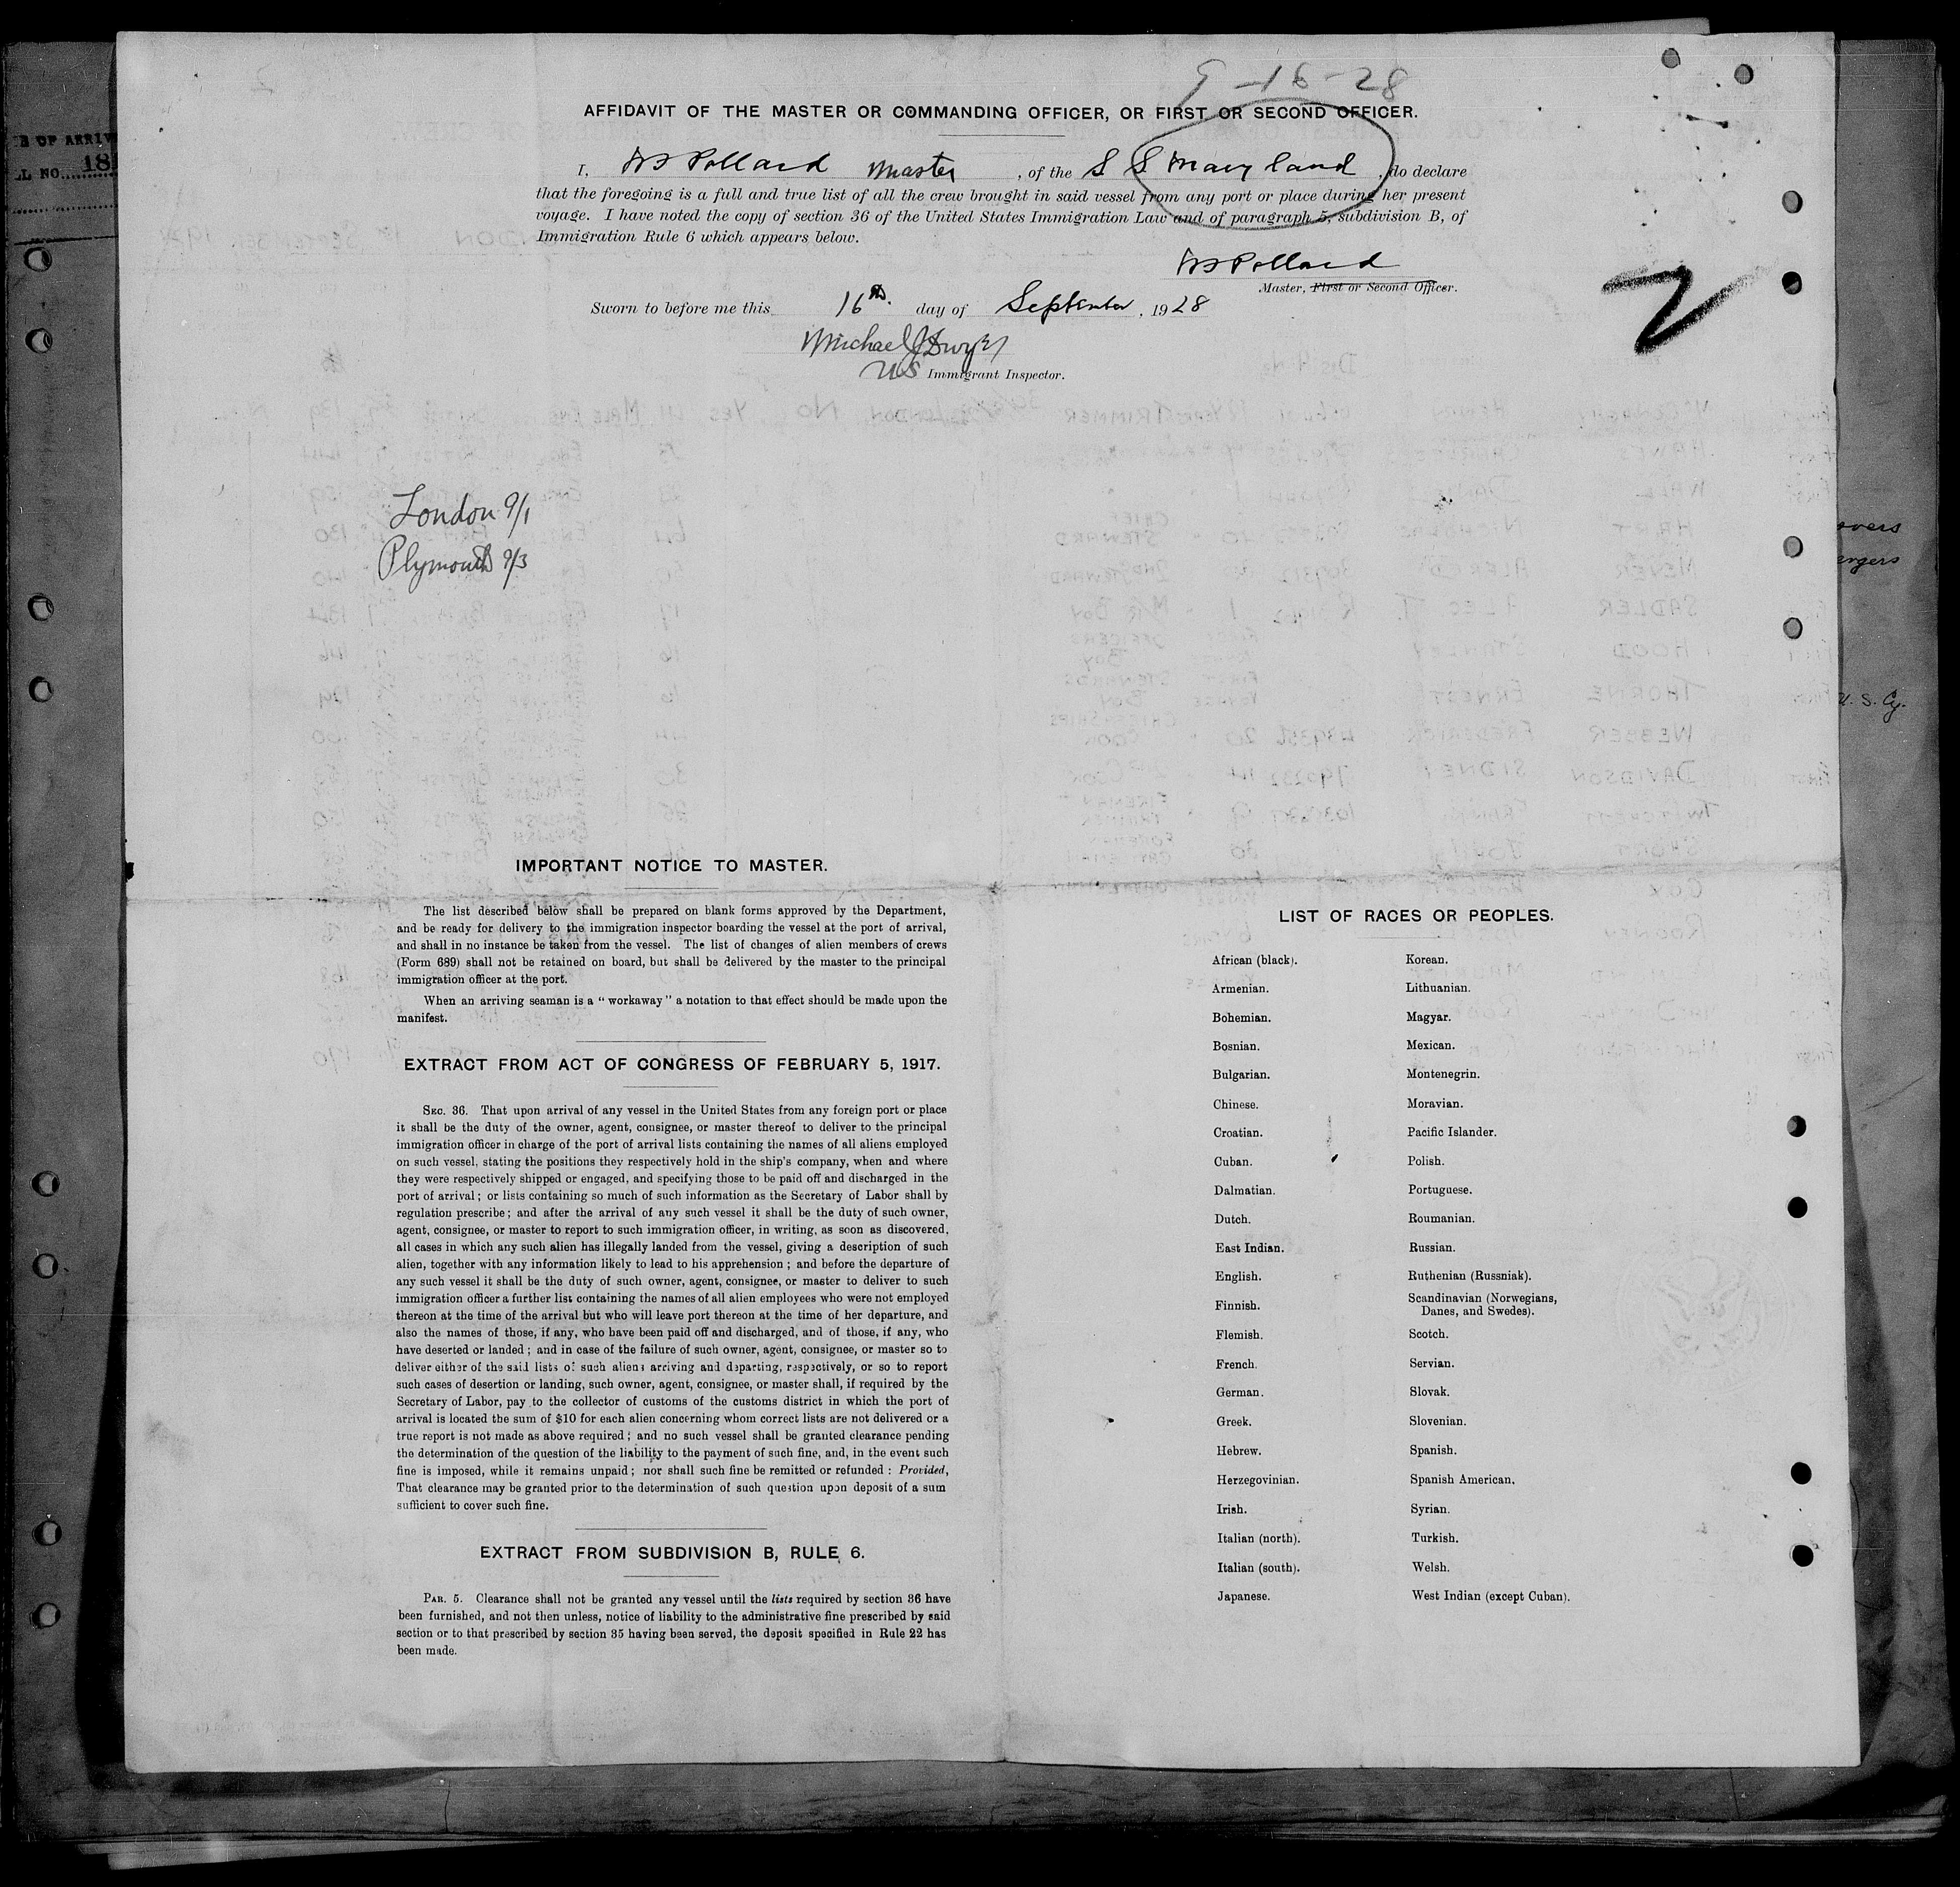 9-16-28
AFFIDAVIT OF THE MASTER OR COMMANDING OFFICER, OR FIRST OR SECOND OFFICER.
I, Pollard Master, of the S S Maryland, do declare
that the foregoing is a full and true list of all the crew brought in said vessel from any port or place during her present
voyage. I have noted the copy of section 36 of the United States Immigration Law and of paragraph 5, subdivision B, of
Immigration Rule 6 which appears below.
Pollard
Master, First or Second Officer.
Sworn to before me this 16th. day of September, 1928
Michael J Dwyer
US Immigrant Inspector.
2
London 9/1
Plymouth 9/3
IMPORTANT NOTICE TO MASTER.
The list described below shall be prepared on blank forms approved by the Department,
and be ready for delivery to the immigration inspector boarding the vessel at the port of arrival,
and shall in no instance be taken from the vessel. The list of changes of alien members of crews
(Form 689) shall not be retained on board, but shall be delivered by the master to the principal
immigration officer at the port.
When an arriving seaman is a "workaway" a notation to that effect should be made upon the
manifest.
EXTRACT FROM ACT OF CONGRESS OF FEBRUARY 5, 1917.
SEC. 36. That upon arrival of any vessel in the United States from any foreign port or place
it shall be the duty of the owner, agent, consignee, or master thereof to deliver to the principal
immigration officer in charge of the port of arrival lists containing the names of all aliens employed
on such vessel, stating the positions they respectively hold in the ship's company, when and where
they were respectively shipped or engaged, and specifying those to be paid off and discharged in the
port of arrival; or lists containing so much of such information as the Secretary of Labor shall by
regulation prescribe; and after the arrival of any such vessel it shall be the duty of such owner,
agent, consignee, or master to report to such immigration officer, in writing, as soon as discovered,
all cases in which any such alien has illegally landed from the vessel, giving a description of such
alien, together with any information likely to lead to his apprehension; and before the departure of
any such vessel it shall be the duty of such owner, agent, consignee, or master to deliver to such
immigration officer a further list containing the names of all alien employees who were not employed
thereon at the time of the arrival but who will leave port thereon at the time of her departure, and
also the names of those, if any, who have been paid off and discharged, and of those, if any, who
have deserted or landed; and in case of the failure of such owner, agent, consignee, or master so to
deliver either of the said lists of such aliens arriving and departing, respectively, or so to report
such cases of desertion or landing, such owner, agent, consignee, or master shall, if required by the
Secretary of Labor, pay to the collector of customs of the customs district in which the port of
arrival is located the sum of $10 for each alien concerning whom correct lists are not delivered or a
true report is not made as above required; and no such vessel shall be granted clearance pending
the determination of the question of the liability to the payment of such fine, and, in the event such
fine is imposed, while it remains unpaid; nor shall such fine be remitted or refunded: Provided,
That clearance may be granted prior to the determination of such question upon deposit of a sum
sufficient to cover such fine.
EXTRACT FROM SUBDIVISION B, RULE 6.
PAR. 5. Clearance shall not be granted any vessel until the lists required by section 36 have
been furnished, and not then unless, notice of liability to the administrative fine prescribed by said
section or to that prescribed by section 35 having been served, the deposit specified in Rule 22 has
been made.
LIST OF RACES OR PEOPLES.
African (black). Korean.
Armenian. Lithuanian.
Bohemian. Magyar.
Bosnian. Mexican.
Bulgarian. Montenegrin.
Chinese. Moravian.
Croatian. Pacific Islander.
Cuban. Polish.
Dalmatian. Portuguese.
Dutch. Roumanian.
East Indian. Russian.
English. Ruthenian (Russniak).
Finnish. Scandinavian (Norwegians,
Danes, and Swedes).
Flemish. Scotch.
French. Servian.
German. Slovak.
Greek. Slovenian.
Hebrew. Spanish.
Herzegovinian. Spanish American.
Irish. Syrian.
Italian (north). Turkish.
Italian (south). Welsh.
Japanese. West Indian (except Cuban).